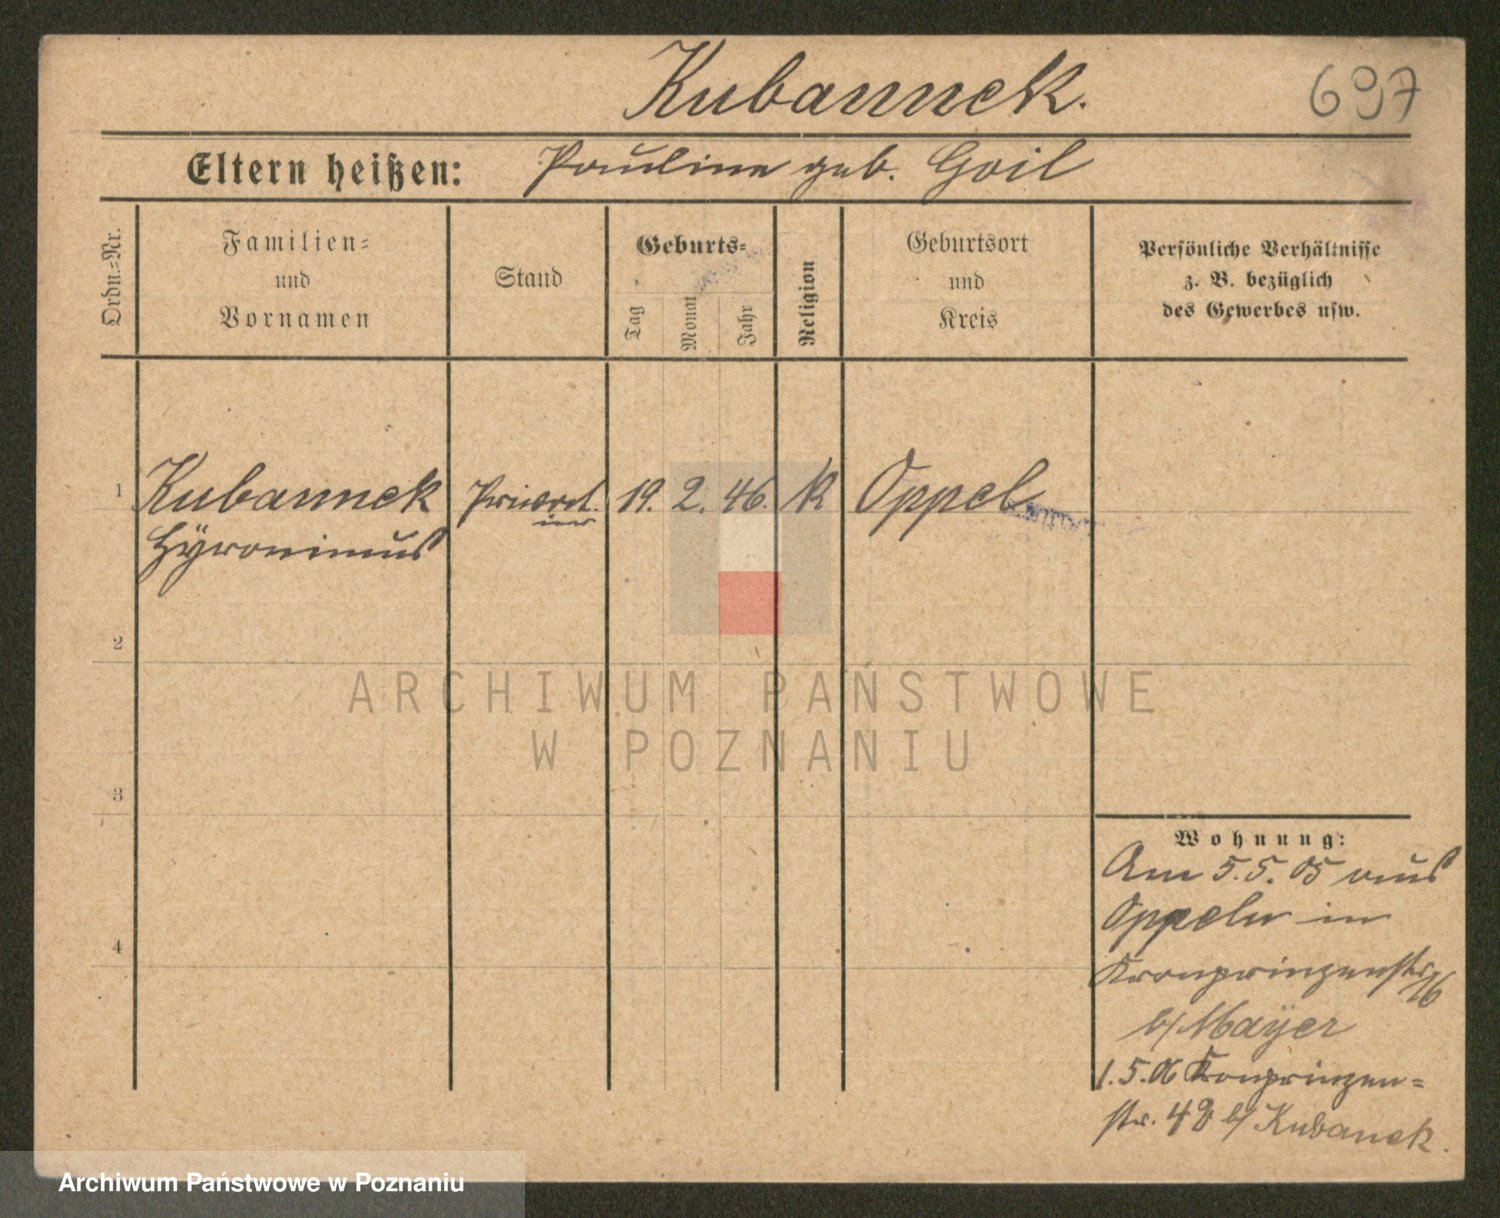 Kubannek. 697
Eltern heißen: Pauline geb. Goil
Ordn.=Nr.
Familien=
und
Vornamen
Stand
Geburts=
Tag
Monat
Jahr
Religion
Geburtsort
und
Kreis
Persönliche Verhältnisse
z. B. bezüglich
des Gewerbes usw.
1 Kubannek 19. 2. 46. K Oppel
Hÿronimus
2
ARCHIWUM PAŃSTWOWE
W POZNANIU
3
Wohnung:
Am 5.5.05 aus
Oppeln in
4
Kronprinzenstr
b/ Mayer
1.5.06 Kronprinzen=
str. 48 b/ Kubanek.
Archiwum Państwowe w Poznaniu